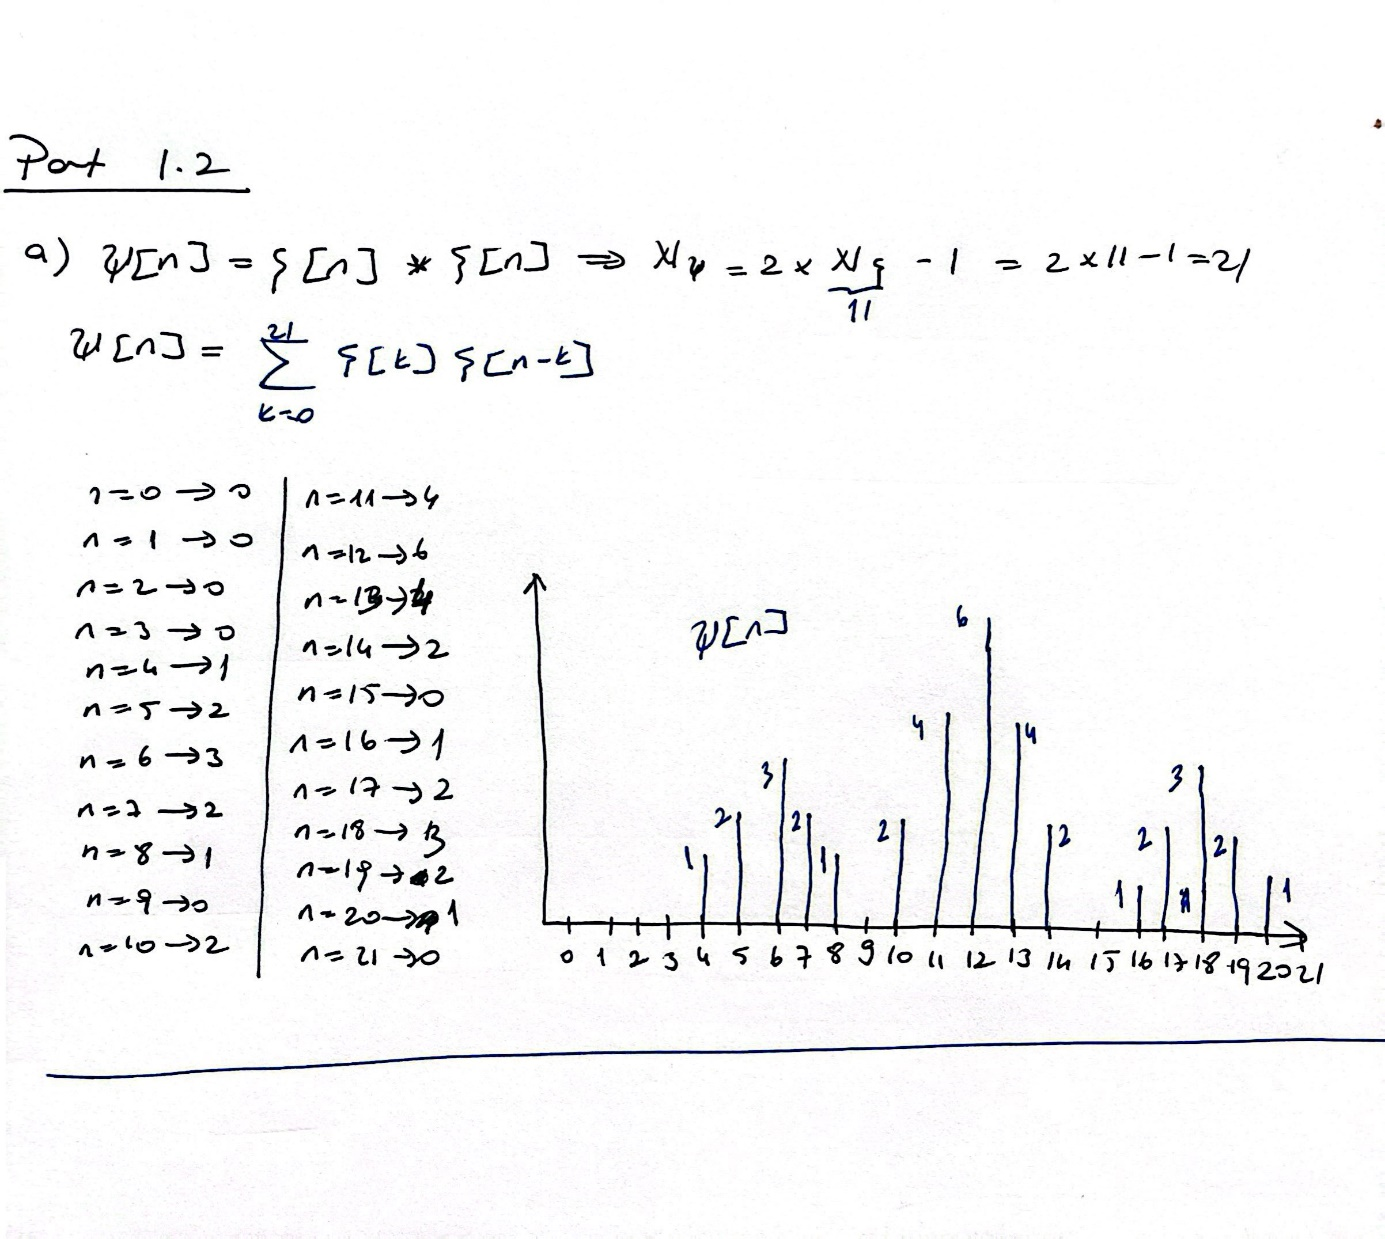 Part 1.2
a) ψ[n] = ξ[n] * ξ[n] ⇒ N_ψ = 2 × N_ξ - 1 = 2×11-1=21
11
ψ[n] = Σ_{k=0}^{21} ξ[k] ξ[n-k]
n=0→0
n=1→0
n=2→0
n=3→0
n=4→1
n=5→2
n=6→3
n=7→2
n=8→1
n=9→0
n=10→2
n=11→4
n=12→6
n=13→4
n=14→2
n=15→0
n=16→1
n=17→2
n=18→3
n=19→2
n=20→1
n=21→0
ψ[n]
1 2 3 2 1 2 4 6 4 2 1 2 3 2 1
0 1 2 3 4 5 6 7 8 9 10 11 12 13 14 15 16 17 18 19 20 21